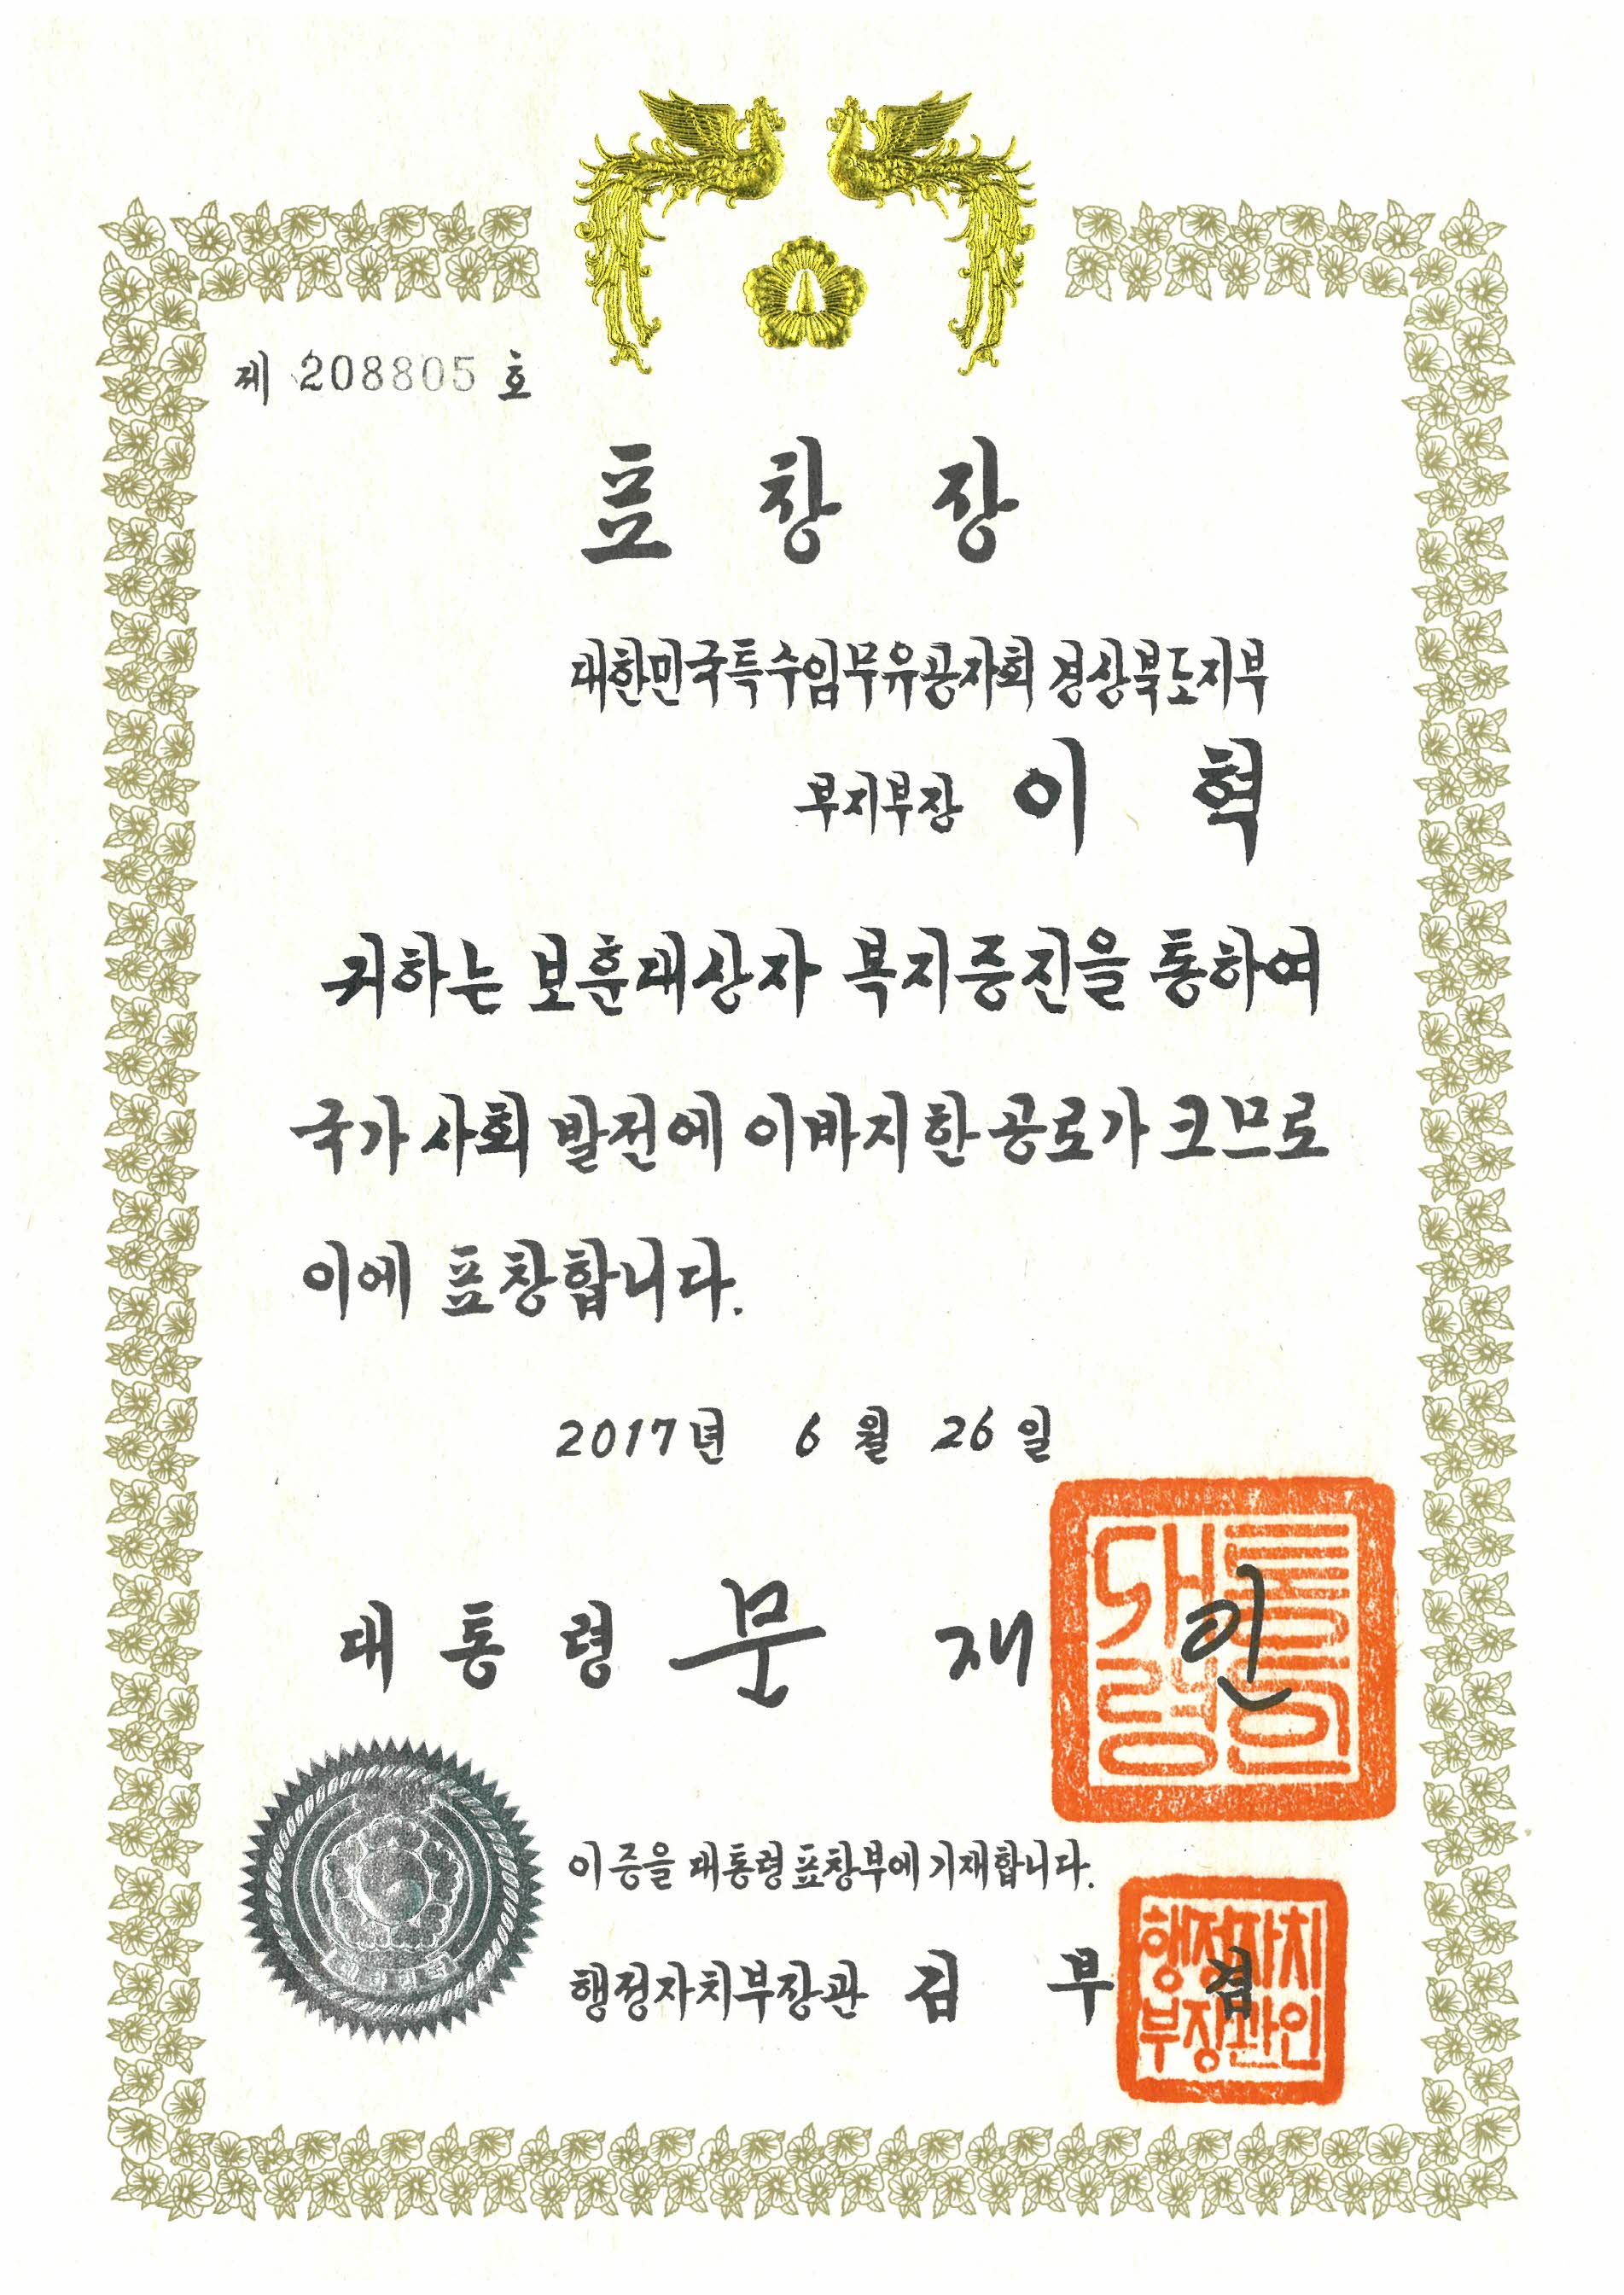 제 208805 호
표 창 장
대한민국특수임무유공자회 경상북도지부
부지부장 이 혁
귀하는 보훈대상자 복지증진을 통하여
국가 사회 발전에 이바지한 공로가 크므로
이에 표창합니다.
2017년 6 월 26 일
대 통 령 문 재 인
대통령인
이 증을 대통령표창부에 기재합니다.
행정자치부장관 김 부 겸
행정자치
부장관인